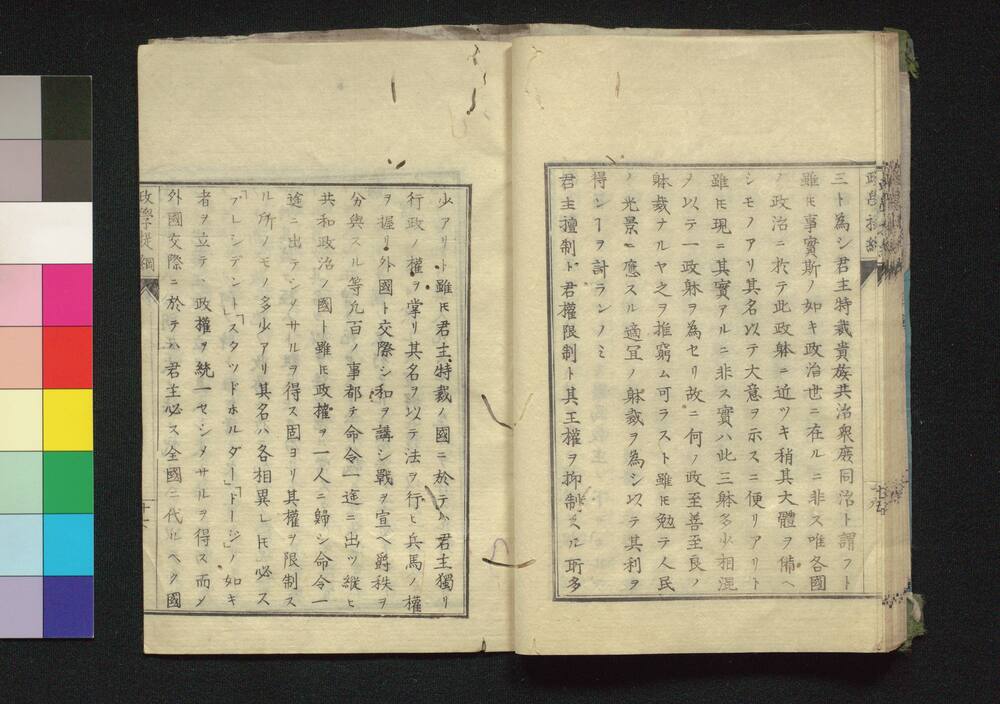 三ト為シ君主特裁貴族共治衆庶同治ト謂フト
雖𪜈事實斯ノ如キ政治世ニ在ルニ非ス唯各國
ノ政治ニ於テ此政躰ニ近ツキ稍其大體ヲ備ヘ
シモノアリ其名以テ大意ヲ示スニ便リアリト
雖𪜈現ニ其實アルニ非ス實ハ此三躰多少相混
ヲ以テ一政躰ヲ為セリ故ニ何ノ政至善至良ノ
躰裁ナルヤ之ヲ推窮ム可ラスト雖𪜈勉テ人民
ノ光景ニ應スル適冝ノ躰裁ヲ為シ以テ其利ヲ
得ンヿヲ計ランノミ
君主擅制ト君權限制ト其王權ヲ抑制スル所多
少アリト雖𪜈君主特裁ノ國ニ於テハ君主獨リ
行政ノ權ヲ掌リ其名ヲ以テ法ヲ行ヒ兵馬ノ權
ヲ握リ外國ト交際シ和ヲ講シ戰ヲ宣ヘ爵秩ヲ
分與スル等凡百ノ事都テ命令一途ニ出ツ縦ヒ
共和政治ノ國ト雖𪜈政權ヲ一人ニ歸シ命令一
途ニ出テシメサルヲ得ス固ヨリ其權ヲ限制ス
ル所ノモノ多少アリ其名ハ各相異レ𪜈必ス
「プレシデント」「スタッドホルダー」「ドージ」ノ如キ
者ヲ立テ丶政權ヲ統一セシメサルヲ得ス而〆
外國交際ニ於テハ君主必ス全國ニ代ルヘク國
政學提綱